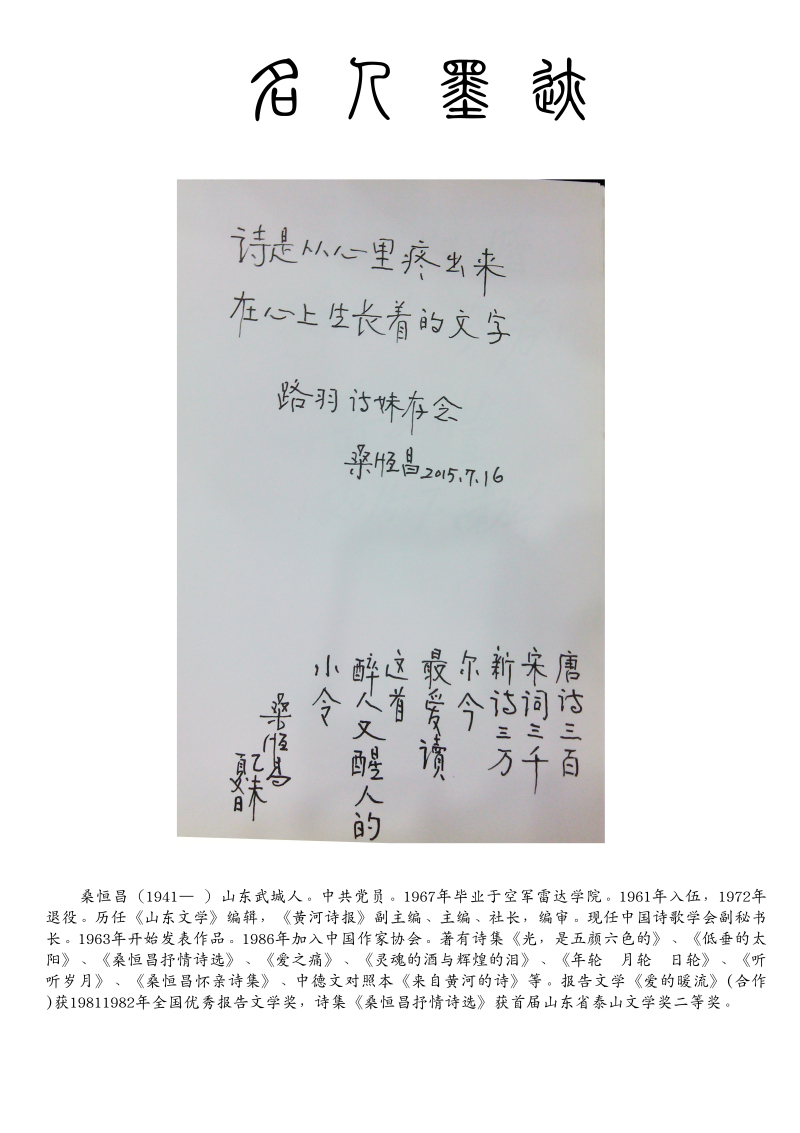 名人墨迹
诗是从心里疼出来
在心上生长着的文字
路羽诗妹存念
桑恒昌2015.7.16
唐诗三百
宋词三千
新诗三万
尔今
最爱读
这首
醉人又醒人的
小令
桑恒昌
乙未
夏日
桑恒昌（1941— ）山东武城人。中共党员。1967年毕业于空军雷达学院。1961年入伍，1972年
退役。历任《山东文学》编辑，《黄河诗报》副主编、主编、社长，编审。现任中国诗歌学会副秘书
长。1963年开始发表作品。1986年加入中国作家协会。著有诗集《光，是五颜六色的》、《低垂的太
阳》、《桑恒昌抒情诗选》、《爱之痛》、《灵魂的酒与辉煌的泪》、《年轮　月轮　日轮》、《听
听岁月》、《桑恒昌怀亲诗集》、中德文对照本《来自黄河的诗》等。报告文学《爱的暖流》(合作
)获19811982年全国优秀报告文学奖，诗集《桑恒昌抒情诗选》获首届山东省泰山文学奖二等奖。